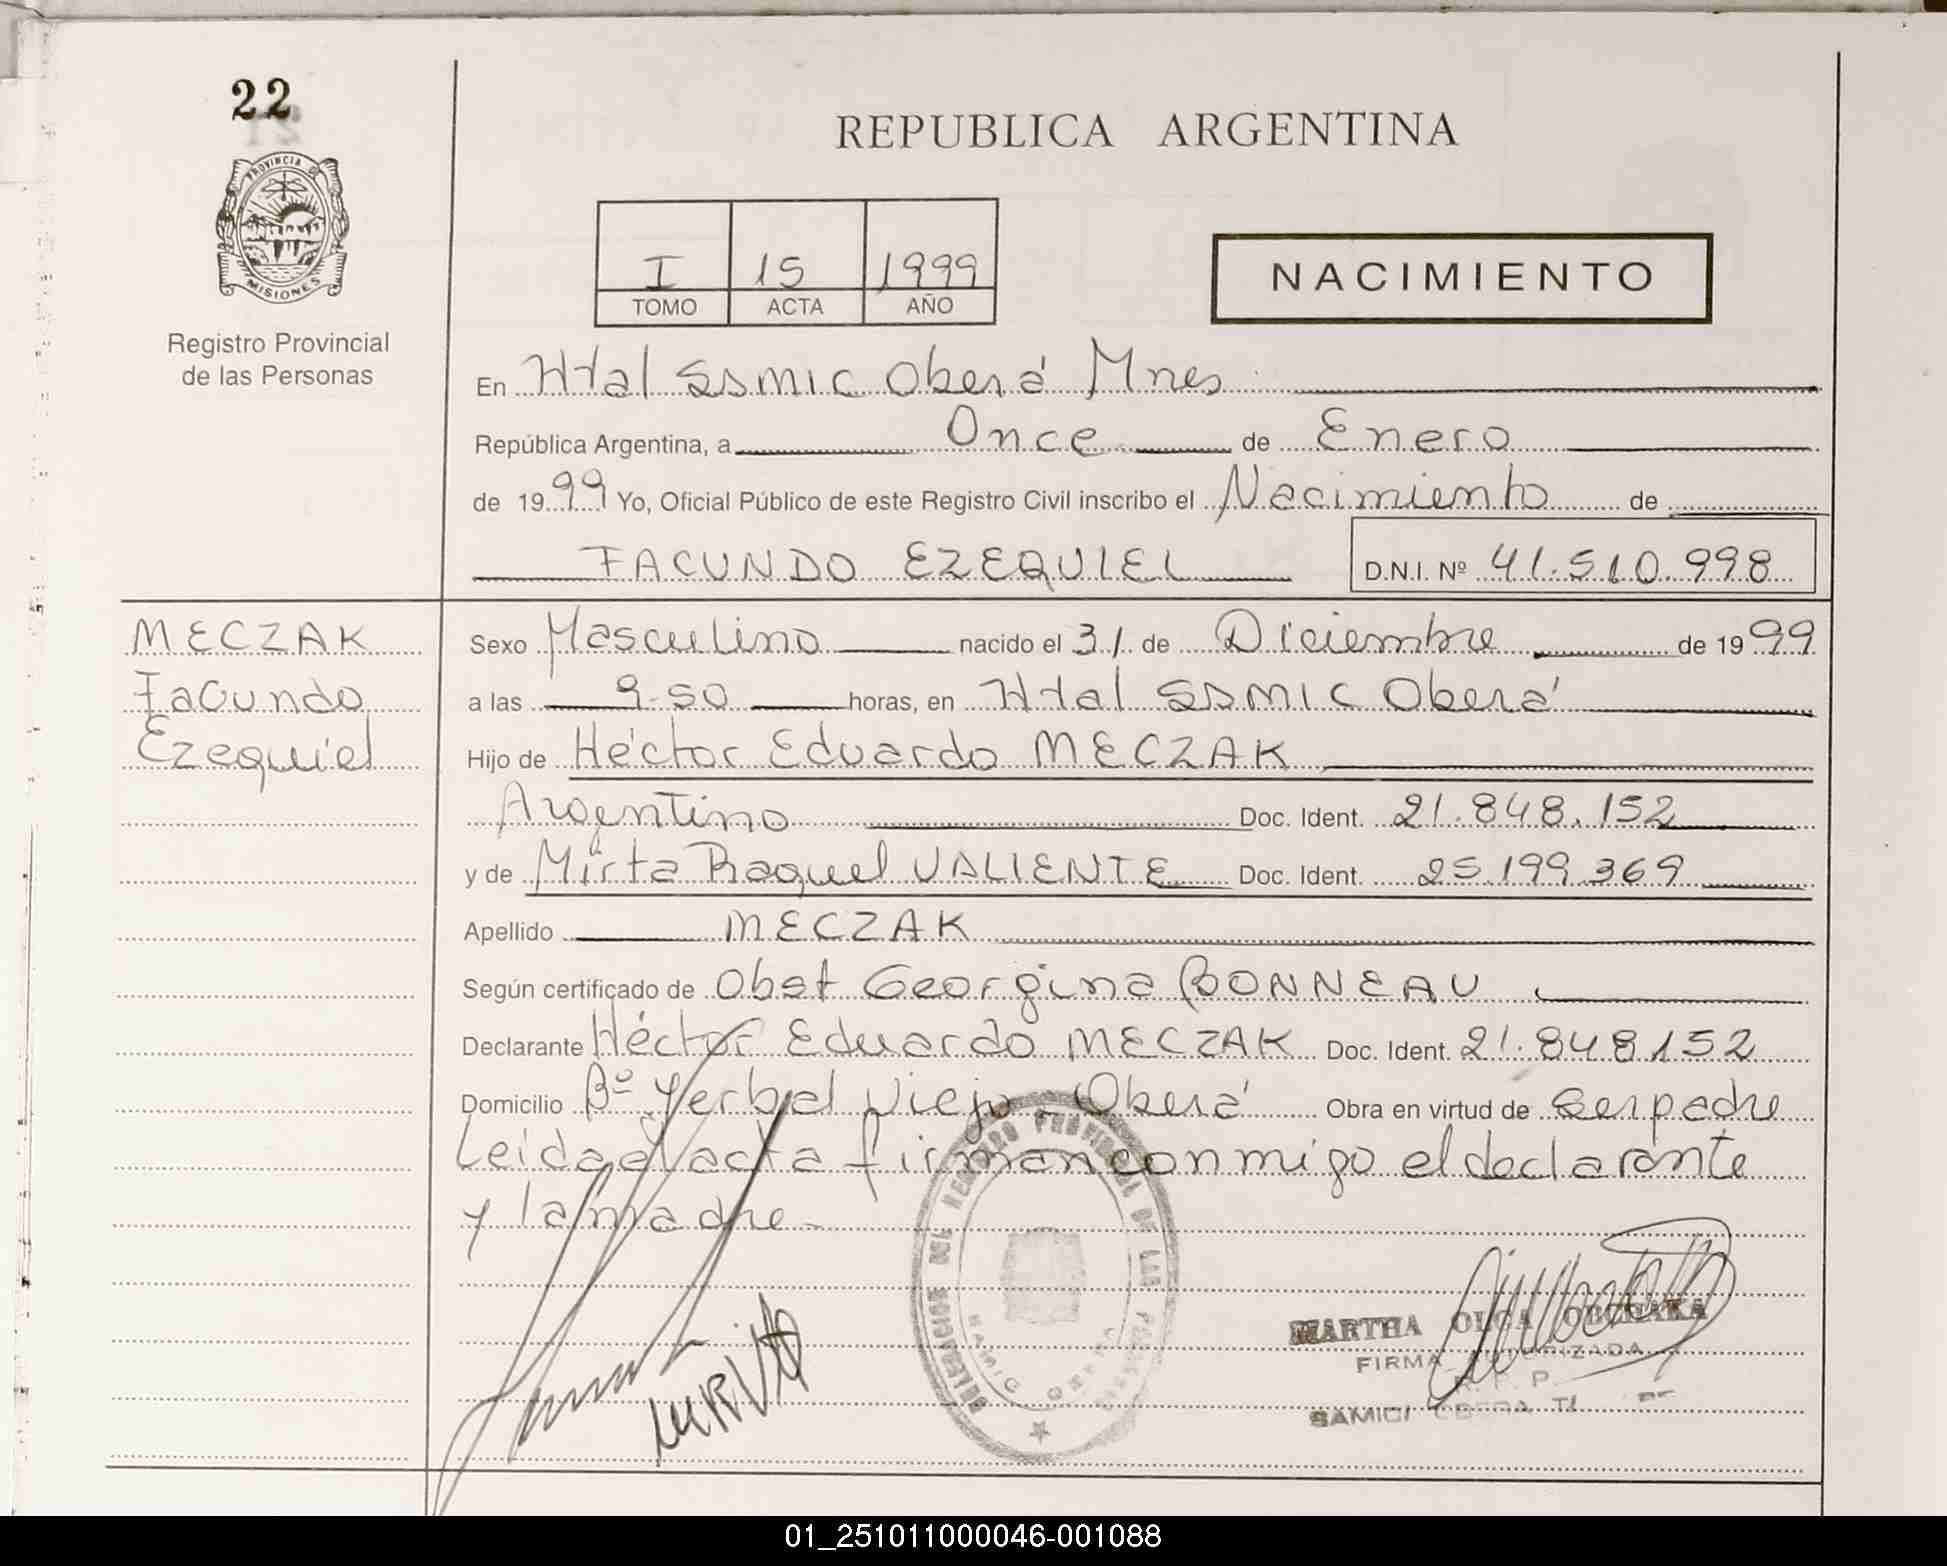 22
REPUBLICA ARGENTINA
PROVINCIA DE
MISIONES
I 15 1999
TOMO ACTA AÑO
NACIMIENTO
Registro Provincial
de las Personas
En Htal SSMIC Oberá Mnes
República Argentina, a Once de Enero
de 1999 Yo, Oficial Público de este Registro Civil inscribo el Nacimiento de
FACUNDO EZEQUIEL D.N.I. Nº 41.510.998
MECZAK
Facundo
Ezequiel
Sexo Masculino nacido el 31 de Diciembre de 1999
a las 9-50 horas, en Htal SSMIC Oberá
Hijo de Héctor Eduardo MECZAK
Argentino Doc. Ident. 21.848.152
y de Mirta Raquel VALIENTE Doc. Ident. 25.199.369
Apellido MECZAK
Según certificado de Obst Georgina BONNEAU
Declarante Héctor Eduardo MECZAK Doc. Ident. 21.848152
Domicilio Bº Yerbal Viejo - Oberá Obra en virtud de ser padre
Leida el acta firman conmigo el declarante
y la madre -
DELEGACION DEL REGISTRO PROVINCIAL DE LAS PERSONAS
MARTHA OLGA
FIRMA AUTORIZADA
R. P. P.
01_251011000046-001088